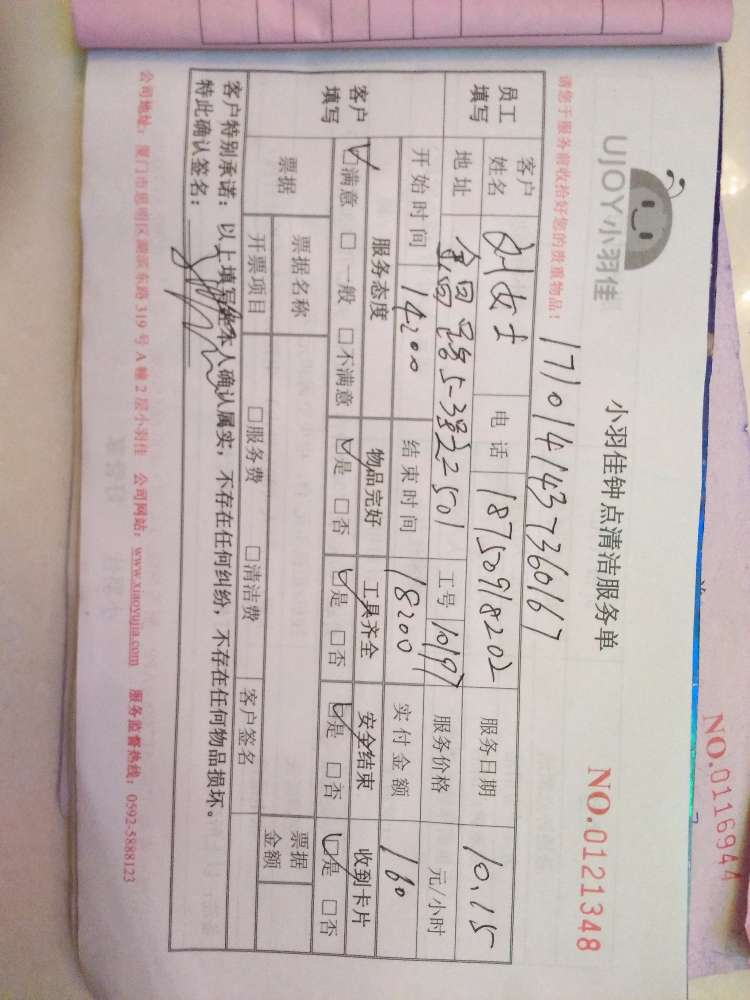 UJOY小羽佳
小羽佳钟点清洁服务单
NO.0121348
请您于服务前收拾好您的贵重物品！
1710141437360167
员工填写 客户姓名 刘女士 电话 18750918202 服务日期 10.15
地址 金昌路5-3号22501 工号 10197 服务价格 元/小时
开始时间 14:00 结束时间 18:00 实付金额 160
客户填写 服务态度 物品完好 工具齐全 安全结束 收到卡片
☑满意 □一般 □不满意 ☑是 □否 ☑是 □否 ☑是 □否 ☑是 □否
票据 票据名称 票据金额
开票项目 □服务费 □清洁费 客户签名
客户特别承诺：以上填写经本人确认属实，不存在任何纠纷，不存在任何物品损坏。
特此确认签名：
公司地址：厦门市思明区湖滨东路319号A幢2层小羽佳 公司网站：www.xiaoyujia.com 服务监督热线：0592-5888123
NO.0116944